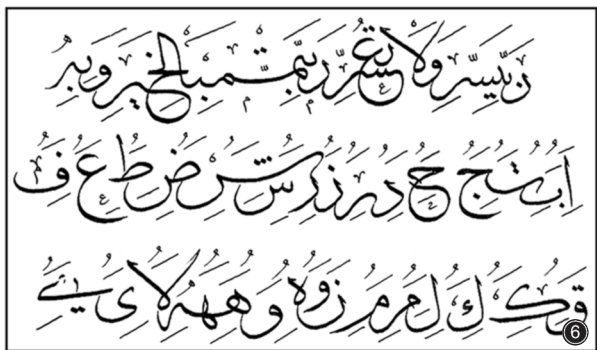 رب يسر ولا تعسر رب تمم بالخير
ا ب ت ج ح د ر ز ر س ش ر ض ط ع ف
ق ك ك ل م ر م ز و ه و هه لا ى ي
6